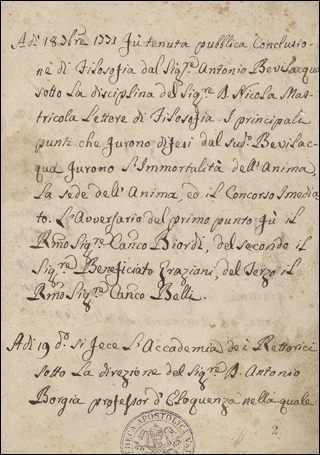 Adì 18 7bre 1771 fù tenuta pubblica Conclusio-
ne di Filosofia dal Sigre Antonio Bevilacqua
sotto La disciplina del Sigre D. Nicola Mas-
tricola Lettore di Filosofia. I principali
punti che furono difesi dal sudo Bevilac-
qua furono L'Immortalità dell'Anima,
La sede dell'Anima, ed il Concorso Imedia
to. L'Avversario del primo punto fù il
Rmo Sigre Canco Biordi, del secondo il
Sigre Beneficiato Graziani, del Terzo il
Rmo Sigre Canco Belli.
Adì 19 do. si fece L'Accademia dei Rettorici
sotto La direzione del Sigre D. Antonio
Borgia professor d'Eloquenza nella quale
2